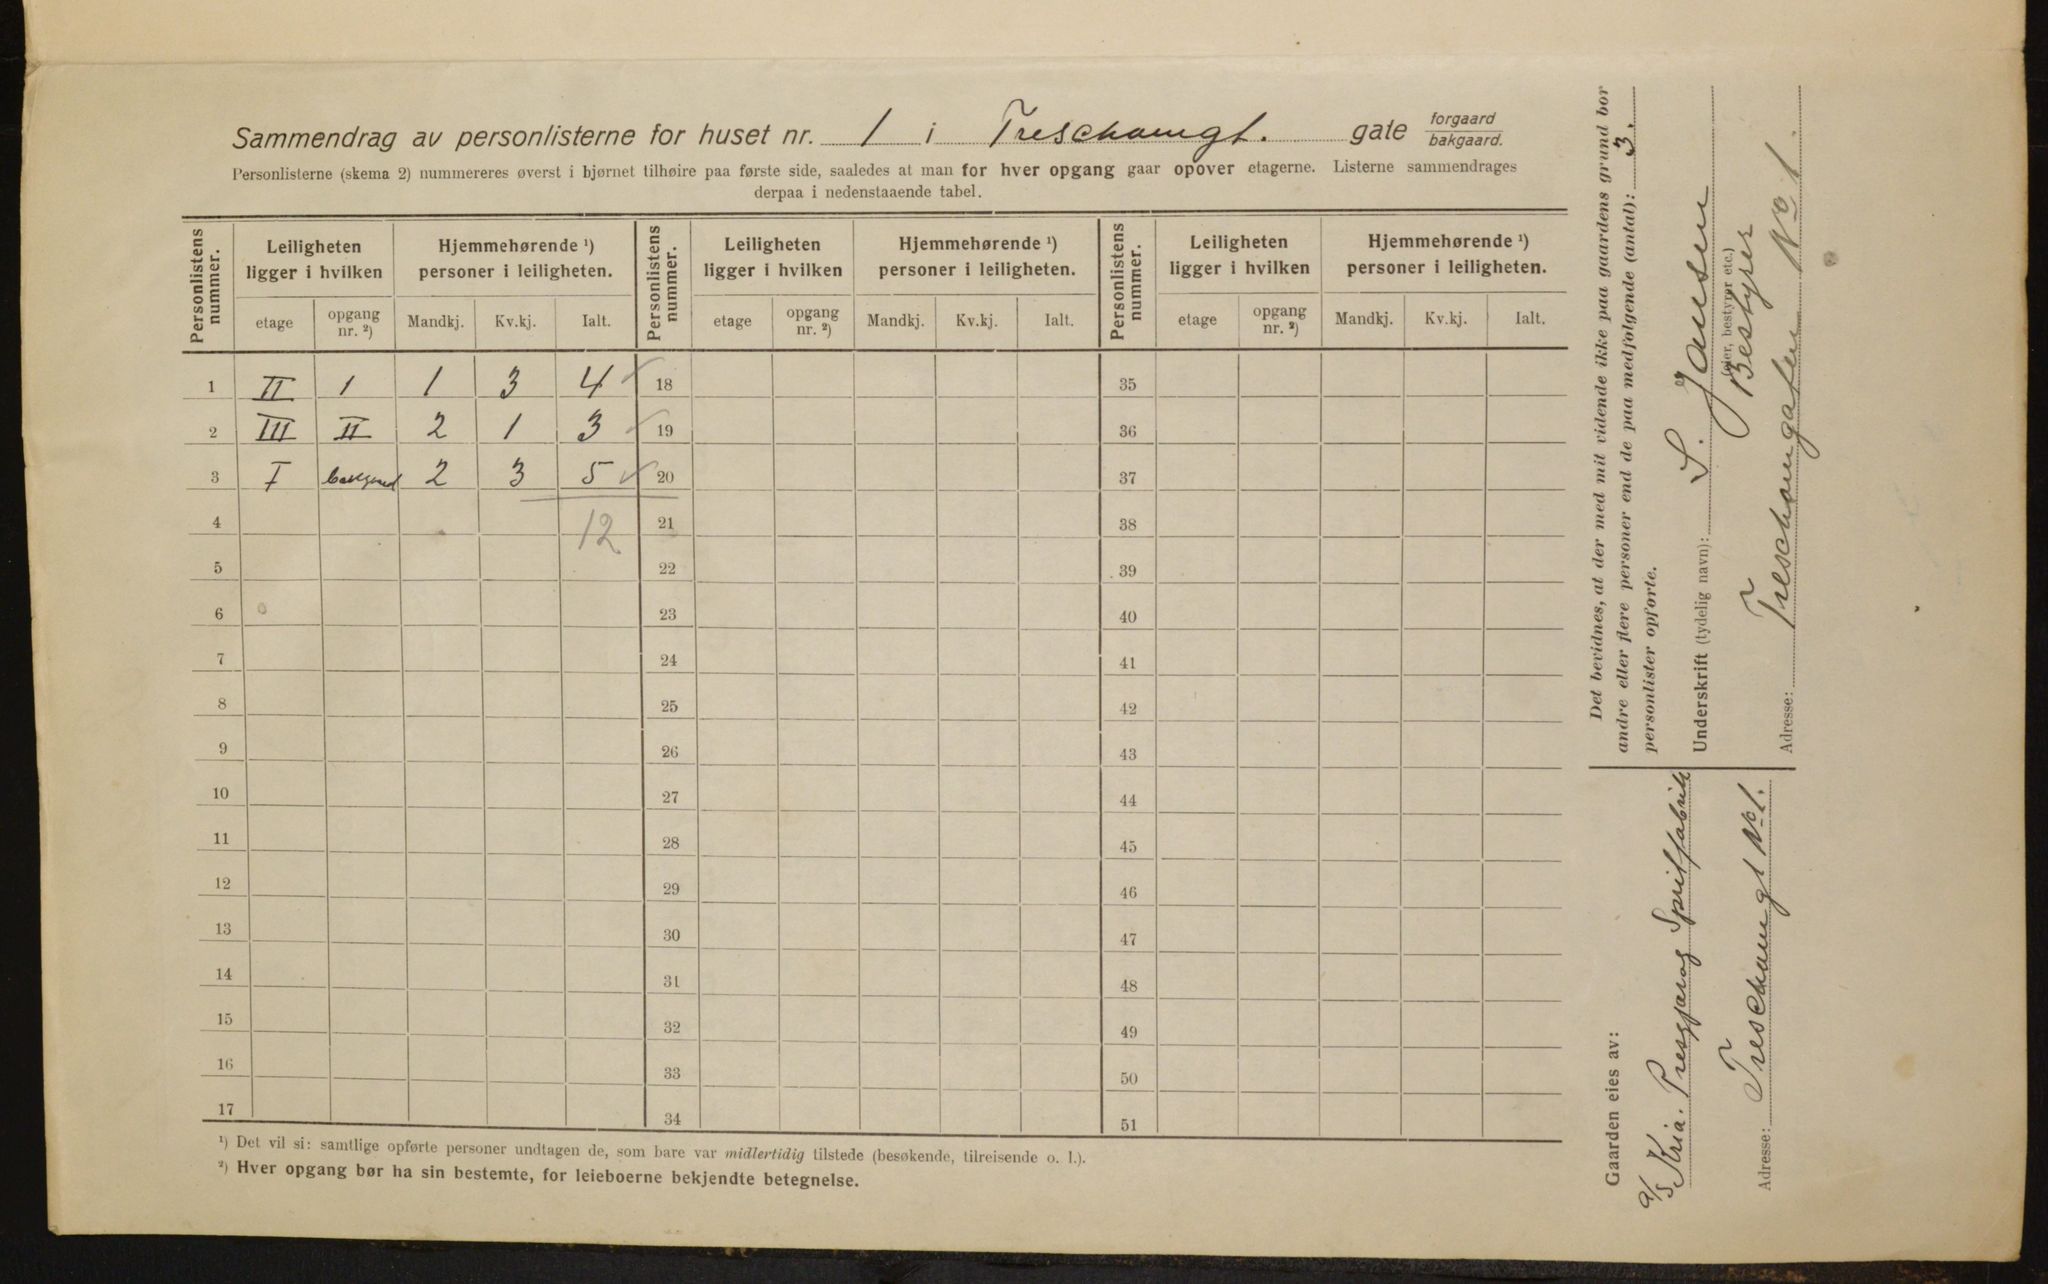 Sammendrag av personlisterne for huset nr. 1 i Treschowsgt. gate forgaard/bakgaard.
Personlisterne (skema 2) nummereres øverst i hjørnet tilhøire paa første side, saaledes at man for hver opgang gaar opover etagerne. Listerne sammendrages
derpaa i nedenstaaende tabel.
Personlistens nummer. Leiligheten ligger i hvilken Hjemmehørende ¹) personer i leiligheten. Personlistens nummer. Leiligheten ligger i hvilken Hjemmehørende ¹) personer i leiligheten. Personlistens nummer. Leiligheten ligger i hvilken Hjemmehørende ¹) personer i leiligheten.
etage opgang nr. ²) Mandkj. Kv.kj. Ialt. etage opgang nr. ²) Mandkj. Kv.kj. Ialt. etage opgang nr. ²) Mandkj. Kv.kj. Ialt.
1 II 1 1 3 4 18 35
2 III II 2 1 3 19 36
3 I 2 3 5 20 37
4 12 21 38
5 22 39
6 23 40
7 24 41
8 25 42
9 26 43
10 27 44
11 28 45
12 29 46
13 30 47
14 31 48
15 32 49
16 33 50
17 34 51
¹) Det vil si: samtlige opførte personer undtagen de, som bare var midlertidig tilstede (besøkende, tilreisende o. l.).
²) Hver opgang bør ha sin bestemte, for leieboerne bekjendte betegnelse.
Det bevidnes, at der med mit vidende ikke paa gaardens grund bor
andre eller flere personer end de paa medfølgende (antal): 3.
personlister opførte.
Underskrift (tydelig navn): S. Jansen
(eier, bestyrer etc.)
Bestyrer
Adresse: Treschowsgaten No 1.
Gaarden eies av:
a/s Kria. Presgjær og Spritfabrik
Adresse: Treschowsgt No 1.